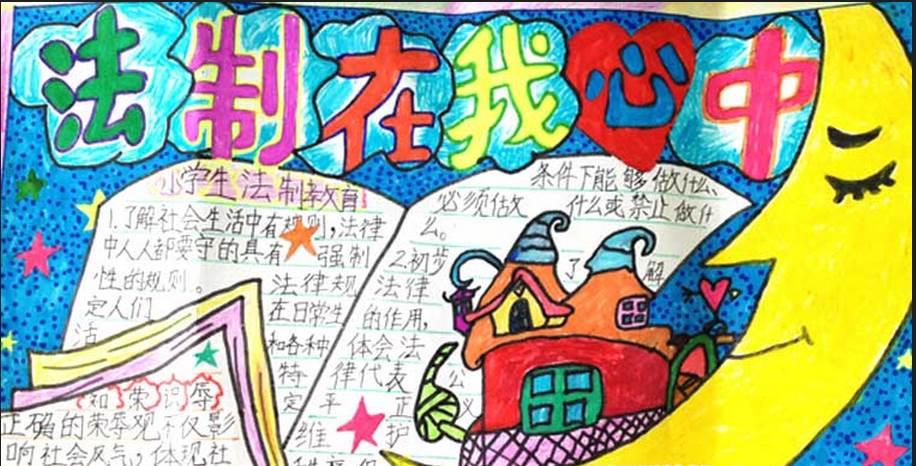 法制在我心中
小学生法制教育
1.了解社会生活中有规则,法律
中人人都要守的具有 强制
性的规则。 法律规
定人们 在日常生
活 和各种
特
定
条件下能够做什么、
必须做 什么或禁止做什
么。
2.初步 了 解
法律
的作用,
体会法
律代表 公
平 正 义
维 护
知荣识辱
正确的荣辱观不仅影
响社会风气,体现社